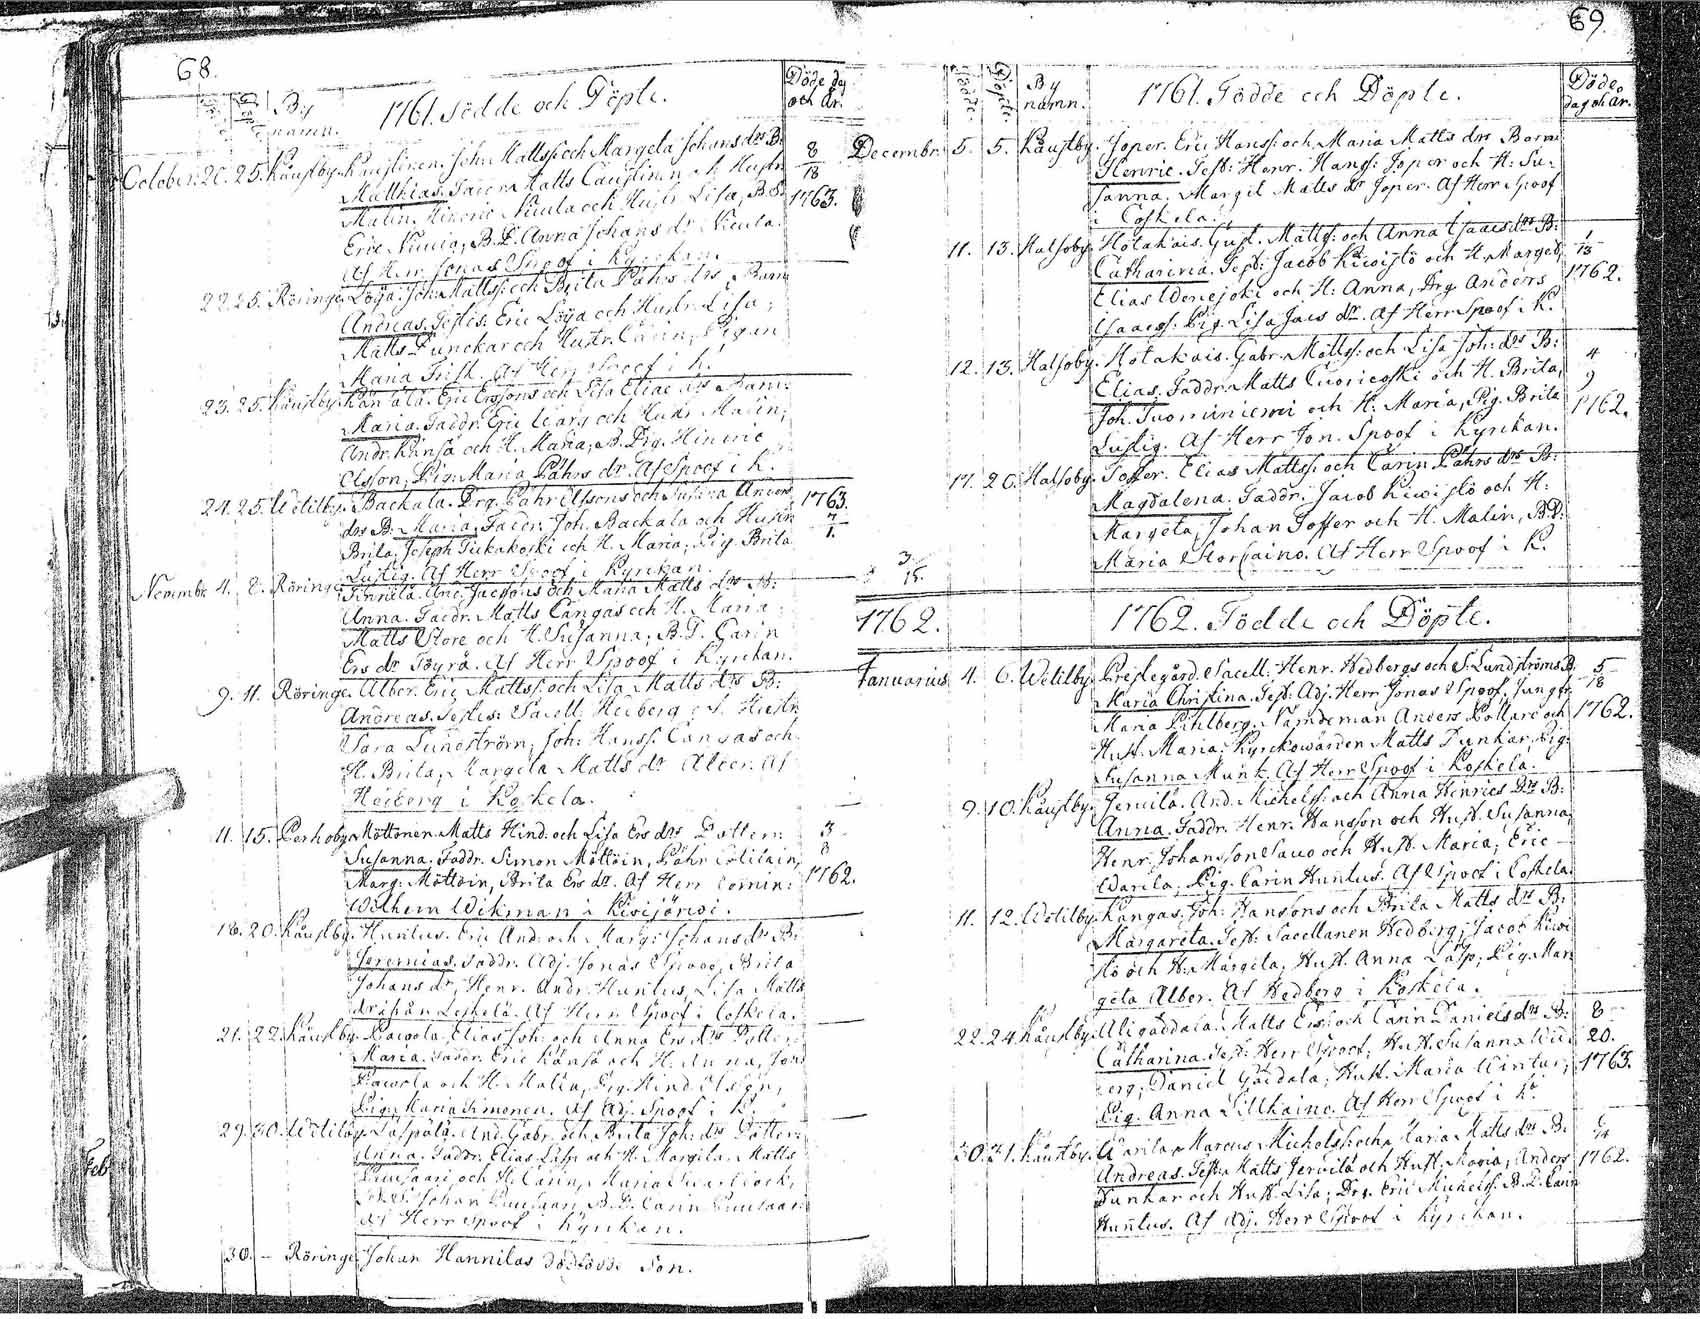 68.
Födde Döpte By namn. 1761. Födde och Döpte. Döde dag och år.
October. 20. 25. Kaustby. Kaustinen. Joh. Mattss: och Margeta Johans drs B:
Matthias. Faddr. Matts Caustinen och Hustr. 8/18 1763.
Malin, Hinric Niculä och Hustr. Lisa, B. S.
Eric Nicula, B. D. Anna Johans dr. Nicula.
Af Herr Jonas Spoof i Kyrckan.
22. 25. Röringe. Löya. Joh. Mattss: och Brita Påhrs drs Barn
Andreas. Testes: Eric Löya och Hustr. Lisa;
Matts Dunckar och Hustr. Carin, Pigan
Maria Frisk. Af Herr Spoof i K.
23. 25. Kaustby. Eric Erssons och Lisa Eliae drs Barn:
Maria. Faddr. Eric Warg och Hustr. Malin,
Andr. Känsä och H. Maria, B. Drg. Hinric
Olsson, Pig. Maria Påhrs dr. Af Spoof i K.
24. 25. Wetilby. Backala. Drg. Påhr Olssons och Susana Anders 1763.
drs B. Maria. Faddr. Joh. Backala och Hustr. 7/1.
Brita; Joseph Tiukakoski och H. Maria; Pig. Brita
Lustig. Af Herr Spoof i Kyrckan.
Novembr. 4. 8. Röringe. Finnilä. And. Jacsons och Maria Matts drs B:
Anna. Faddr. Matts Cangas och H. Maria, 3/15.
Matts Store och H. Susanna; B. D. Carin
Ers dr Töyrä. Af Herr Spoof i Kyrckan.
9. 11. Röringe. Alber. Eric Mattss: och Lisa Matts drs B:
Andreas. Testes: Sacell. Hedberg och Hustr.
Sara Lundström; Joh: Hanss. Cangas och
H. Brita, Margeta Matts dr Alber. Af
Hedberg i Koskela.
11. 15. Perhoby. Möttönen. Matts Hind: och Lisa Ers drs Dotter: 3/8 1762.
Susanna. Faddr. Simon Möttöin, Påhr
Marg: Möttöin, Brita Ers dr. Af Herr Comin:
Wilhem Wikman i Kivijärwi.
18. 20. Kaustby. Huntus. Eric And: och Marg: Johans dr B:
Jeremias. Faddr. Adj. Jonas Spoof, Brita
Johans dr, Henr. Andr. Huntus, Lisa Matts
dr ifrån Leskelä. Af Herr Spoof i Coskela.
21. 22. Kaustby. Pawola. Elias Joh: och Anna Ers drs Dotter
Maria. Faddr. Eric Känsä och H. Anna, Joh:
Pawola och H. Malin, Drg. Hind
Pig. Maria Simonen. Af Adj. Spoof i K.
29. 30. Wetilby. Låspälä. And. Gabr. och Brita Joh: drs Dotter:
Anna. Faddr. Elias Låsp och H. Margeta. Matts
Puusaari och H. Carin, Maria
Johan Puusaari, B. D. Carin Puusaari
Af Herr Spoof i Kyrckan.
30. – Röringe. Johan Hannilas dödfödde Son.
69.
Födde. Döpte. By namn. 1761. Födde och Döpte. Döde dag och år.
Decembr. 5. 5. Kaustby. Joper. Eric Hanss: och Maria Matts drs Barn
Henric. Test: Henr. Hanss: Joper och H. Su-
sanna. Margit Matts dr Joper. Af Herr Spoof
i Coskela.
11. 13. Halsoby. Hotakais. Gust. Matts: och Anna Isaacs drs B: 1/13 1762.
Catharina. Test: Jacob Kiwistö och H. Marget,
Elias Wenejoki och H: Anna, Drg. Anders
Isaacss: Pig. Lisa Jacs dr. Af Herr Spoof i K.
12. 13. Halsoby. Hotakais. Gabr. Mattss: och Lisa Joh: drs B: 4/9 1762.
Elias. Faddr. Matts Cuoricoski och H. Brita,
Joh. Tuominiemi och H: Maria, Pig. Brita
Lustig. Af Herr Jon. Spoof i Kyrckan.
17. 20. Halsoby. Toffer. Elias Mattss: och Carin Påhrs drs B:
Magdalena. Faddr. Jacob Kiwistö och H:
Margeta, Johan Toffer och H. Malin, B. D:
Maria Storcaino. Af Herr Spoof i K.
1762. 1762. Födde och Döpte.
Januarius 4. 6. Wetilby. Prestegård. Sacell. Henr. Hedbergs och S. Lundströms B. 5/18 1762.
Maria Christina. Test: Adj. Herr Jonas Spoof. Jungfr.
Maria Pihlberg. Nämdeman Anders Pollare och
Hust. Maria; Kyrckowärden Matts Dunkar, Pig:
Susanna Munk. Af Herr Spoof i Koskela.
9. 10. Kaustby. Jervilä. And. Michelss: och Anna Henrics Drs B:
Anna. Faddr. Henr. Hansson och Hust. Susanna,
Henr. Johansson Sawo och Hust. Maria; Eric
Warila, Pig. Carin Huntus. Af Spoof i Coskela.
11. 12. Wetilby. Kangas. Joh: Hansons och Brita Matts drs B:
Margareta. Test: Sacellanen Hedberg; Jacob Kiwi
stö och H: Margita, Hust. Anna Låsp; Pig. Mar
geta Alber. Af Hedberg i Koskela.
22. 24. Kaustby. Aligöddala. Matts Erss: och Carin Daniels drs B: 8/20. 1763.
Catharina. Test: Herr Spoof, Hust. Susanna Wid
berg; Daniel Gäddala; Hust. Maria Wintur;
Pig. Anna Lillkaino. Af Herr Spoof i K.
30. 31. Kaustby. Warila. Marcus Michelss: och Maria Matts drs B. 1762.
Andreas. Test: Matts Jervilä och Hust. Maria; Anders
Dunkar och Hust. Lisa; Drg. Eric Michelss. B. D. Carin
Huntus. Af Adj. Herr Spoof i Kyrckan.
Feb